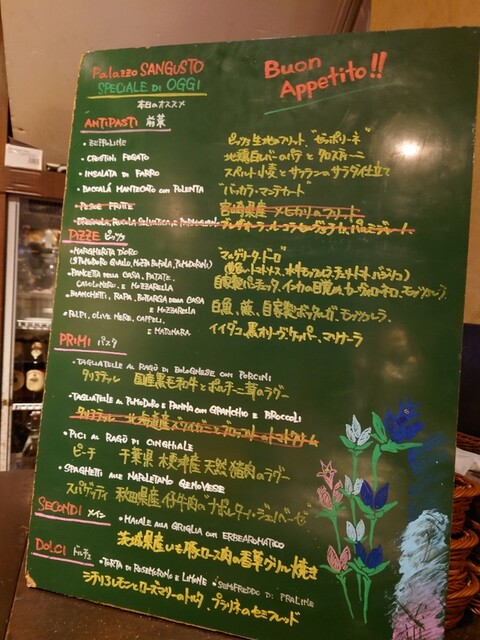 Palazzo SANGUSTO
SPECIALE DI OGGI
本日のオススメ
Buon
Appetito!!
ANTIPASTI 前菜
• ZEPPOLINE ピッツァ生地のフリット、"ゼッポリーネ"
• CROSTINI FEGATO 地鶏白レバーのパテとクロスティーニ
• INSALATA DI FARRO スペルト小麦とサフランのサラダ仕立て
• BACCALÁ MANTECATO CON POLENTA "バッカラ・マンテカート"
• PESCE FRITTE 宮崎県産メヒカリのフリット
• RUCOLA SELVATICA, E PARMIGIANO
PIZZE ピッツァ
• MARGHERITA D'ORO "マルゲリータ・ドーロ"
(S.POMODORO GIALLO, MOZZA BUFALA, POMODORINI)
• PANCETTA DELLA CASA, PATATE, 自家製パンチェッタ、インカの目覚め、カーヴォロネーロ、モッツァレラ
CAVOLO NERO E MOZZARELLA
• BIANCHETTI, RAPA, BOTARGA DELLA CASA 白魚、蕪、自家製ボッタルガ、モッツァレラ
E MOZZARELLA
• POLIPI, OLIVE NERE, CAPPERI, イイダコ、黒オリーヴ、ケッパー、マリナーラ
E MARINARA
PRIMI パスタ
• TAGLIATELLE AL RAGÙ DI BOLOGNESE CON PORCINI
タリアテッレ 国産黒毛和牛とポルチーニ茸のラグー
• TAGLIATELLE AL POMODORO E PANNA CON GRANCHIO E BROCCOLI
タリアテッレ 北海道産ズワイガニとブロッコリーのトマトクリーム
• PICI AL RAGÙ DI CINGHIALE
ピーチ 千葉県木更津産天然猪肉のラグー
• SPAGHETTI ALLE NAPLETANO GENOVESE
スパゲッティ 秋田県産仔牛肉の"ナポレターノ・ジェノベーゼ"
SECONDI メイン
• MAIALE ALLA GRIGLIA CON ERBEAROMATICO
茨城県産いも豚ロース肉の香草グリル焼き
DOLCI ドルチェ
• TORTA DI ROSEMARINO E LIMONE • SEMIFREDDO DI PRALINE
シチリアレモンとローズマリーのトルタ、プラリネのセミフレッド